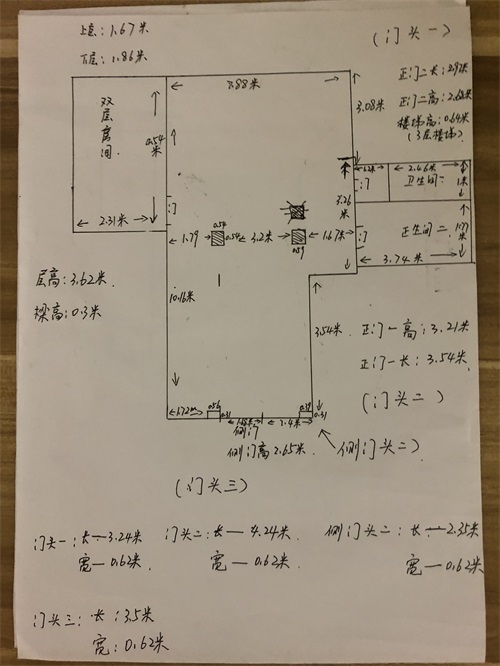 上层:1.67米
下层:1.86米
(门头一)
正门二长:2.92米
正门二高:2.62米
楼梯高:0.64米
(3层楼梯)
7.88米
3.08米
双层房间
2.31米
门
2.46米
卫生间一
1米
门
卫生间二
3.74米
3.26米
1.79
0.54
3.2米
1.67米
0.59
层高:3.62米
梁高:0.3米
10.16米
3.54米
正门一高:3.21米
正门一长:3.54米
(门头二)
1.72m
0.31
1.4米
0.31
侧门
侧门高2.65米
侧门头二)
(门头三)
门头一:长—3.24米
宽—0.62米
门头二:长—4.24米
宽—0.62米
侧门头二:长—2.35米
宽—0.62米
门头三:长:3.5米
宽:0.62米